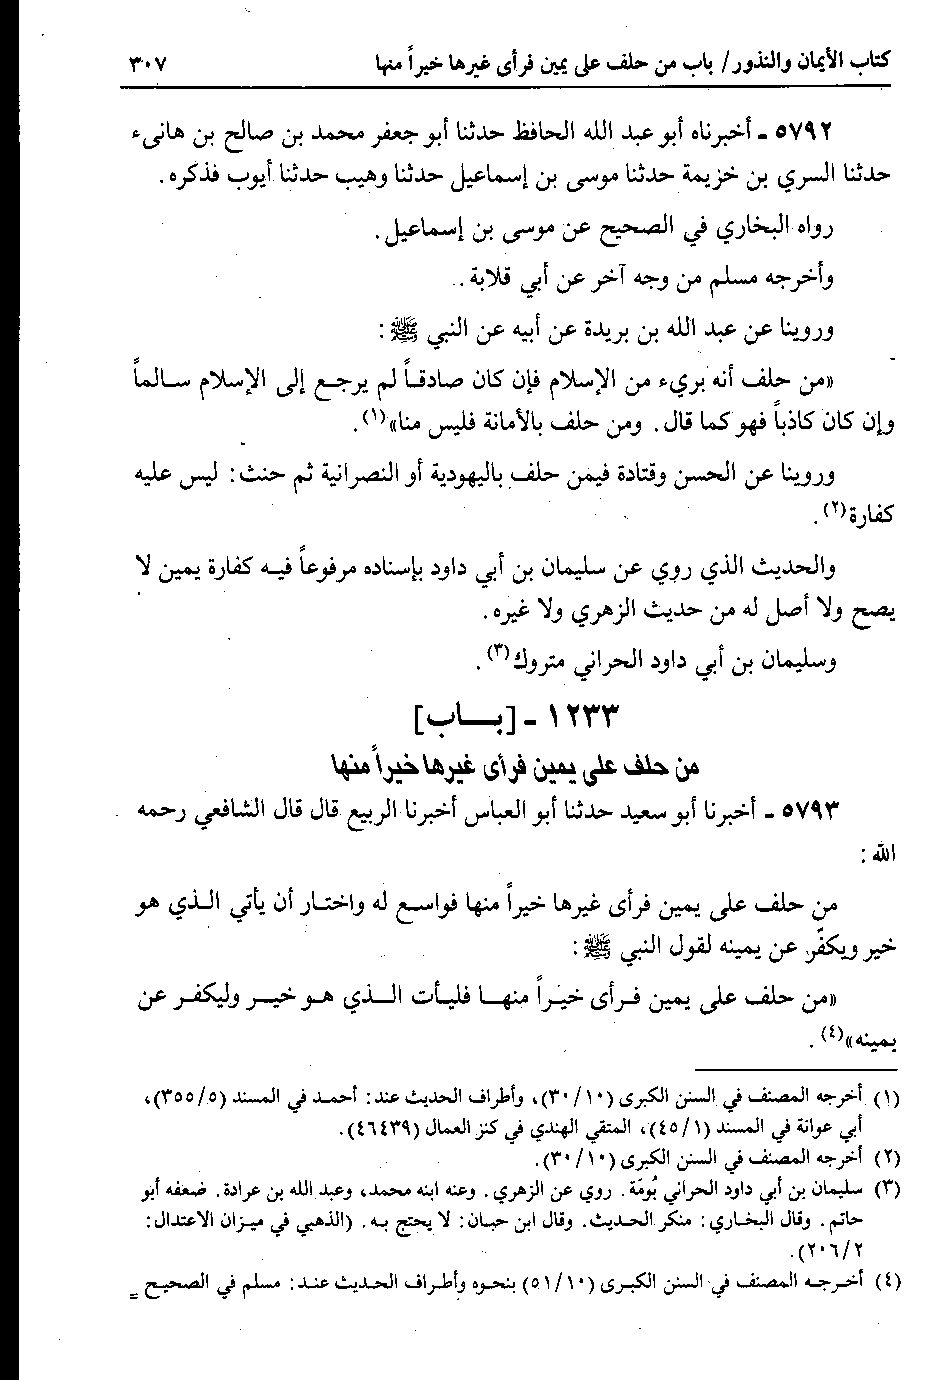 كتاب الأيمان والنذور/ باب من حلف على يمين فرأى غيرها خيراً منها ٣٠٧
٥٧٩٢ - أخبرناه أبو عبد الله الحافظ حدثنا أبو جعفر محمد بن صالح بن هانىء
حدثنا السري بن خزيمة حدثنا موسى بن إسماعيل حدثنا وهيب حدثنا أيوب فذكره.
رواه البخاري في الصحيح عن موسى بن إسماعيل.
وأخرجه مسلم من وجه آخر عن أبي قلابة.
وروينا عن عبد الله بن بريدة عن أبيه عن النبي ﷺ:
«من حلف أنه بريء من الإسلام فإن كان صادقاً لم يرجع إلى الإسلام سالماً
وإن كان كاذباً فهو كما قال. ومن حلف بالأمانة فليس منا»(١).
وروينا عن الحسن وقتادة فيمن حلف باليهودية أو النصرانية ثم حنث: ليس عليه
كفارة(٢).
والحديث الذي روي عن سليمان بن أبي داود بإسناده مرفوعاً فيه كفارة يمين لا
يصح ولا أصل له من حديث الزهري ولا غيره.
وسليمان بن أبي داود الحراني متروك(٣).
١٢٣٣ - [باب]
من حلف على يمين فرأى غيرها خيراً منها
٥٧٩٣ - أخبرنا أبو سعيد حدثنا أبو العباس أخبرنا الربيع قال قال الشافعي رحمه
الله:
من حلف على يمين فرأى غيرها خيراً منها فواسع له واختار أن يأتي الذي هو
خير ويكفّر عن يمينه لقول النبي ﷺ:
«من حلف على يمين فرأى خيراً منها فليأت الذي هو خير وليكفر عن
يمينه»(٤).
(١) أخرجه المصنف في السنن الكبرى (٣٠/١٠)، وأطراف الحديث عند: أحمد في المسند (٣٥٥/٥)،
أبي عوانة في المسند (٤٥/١)، المتقي الهندي في كنز العمال (٤٦٤٣٩).
(٢) أخرجه المصنف في السنن الكبرى (٣٠/١٠).
(٣) سليمان بن أبي داود الحراني بُومَة. روي عن الزهري. وعنه ابنه محمد، وعبد الله بن عرادة. ضعفه أبو
حاتم. وقال البخاري: منكر الحديث. وقال ابن حبان: لا يحتج به. (الذهبي في ميزان الاعتدال:
٢٠٦/٢).
(٤) أخرجه المصنف في السنن الكبرى (٥١/١٠) بنحوه وأطراف الحديث عند: مسلم في الصحيح =